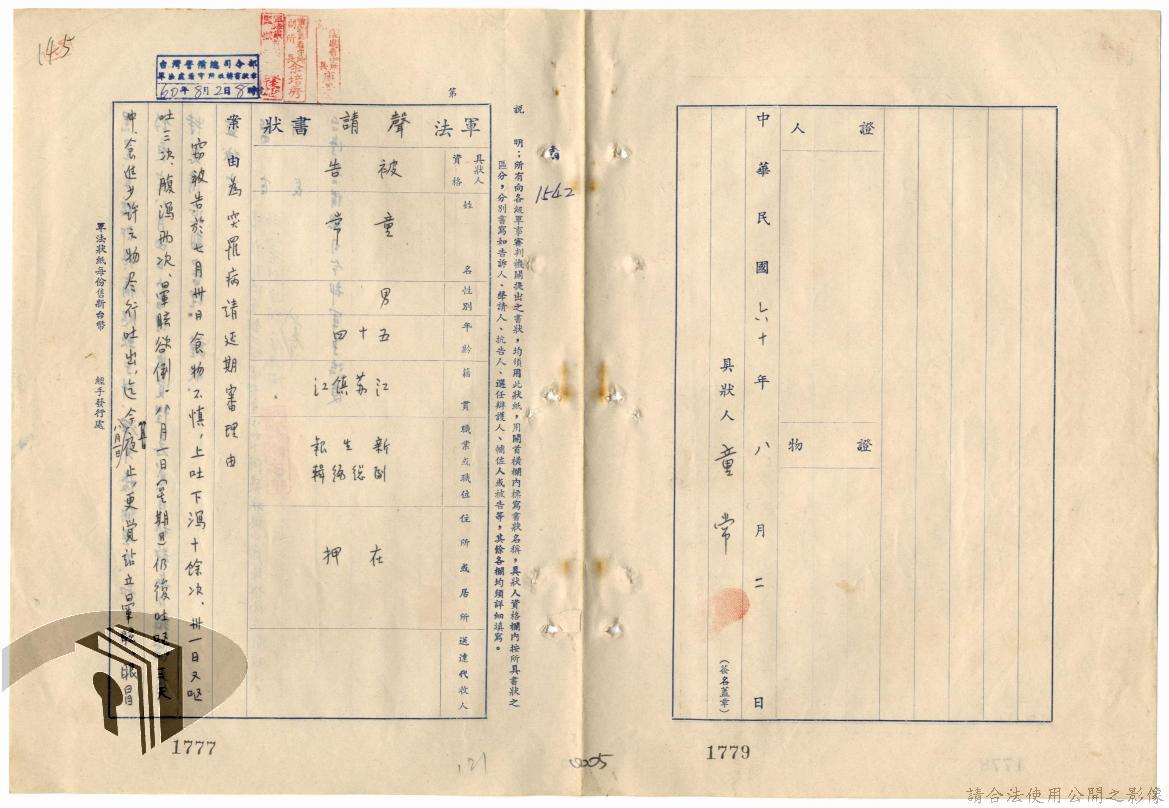 145
台灣警備總司令部
軍法處看守所收轉書狀章
60年8月2日8時
第
說明：所有向各級軍事審判機關提出之書狀，均須用此狀紙，用關首橫欄內標寫書狀名稱，具狀人資格欄內按所具書狀之
區分，分別書寫如告訴人、聲請人、抗告人、選任辯護人、輔佐人或被告等，其餘各欄均須詳細填寫。
1542
軍法聲請書狀
具狀人資格
被告
姓名
童常
性別
男
年齡
五十四
籍貫
江苏鎮江
職業或職位
新生報
副總编輯
住所或居所
在押
送達代收人
案由為突罹病請延期審理由
竊被告於七月卅日食物不慎，上吐下瀉十餘次、卅一日又嘔
吐三次、腹瀉两次、暈眩欲倒、八月一日(星期日)仍復吐
中、食進少許之物尽行吐出、迄今夜止、更覚站立暈眩、眼冒
八月一日
軍法狀紙每份售新台幣
經手發行處
1777
121
005
證人
證物
中華民國六十年八月二日
具狀人 童常
(簽名蓋章)
1779
1778
請合法使用公開之影像